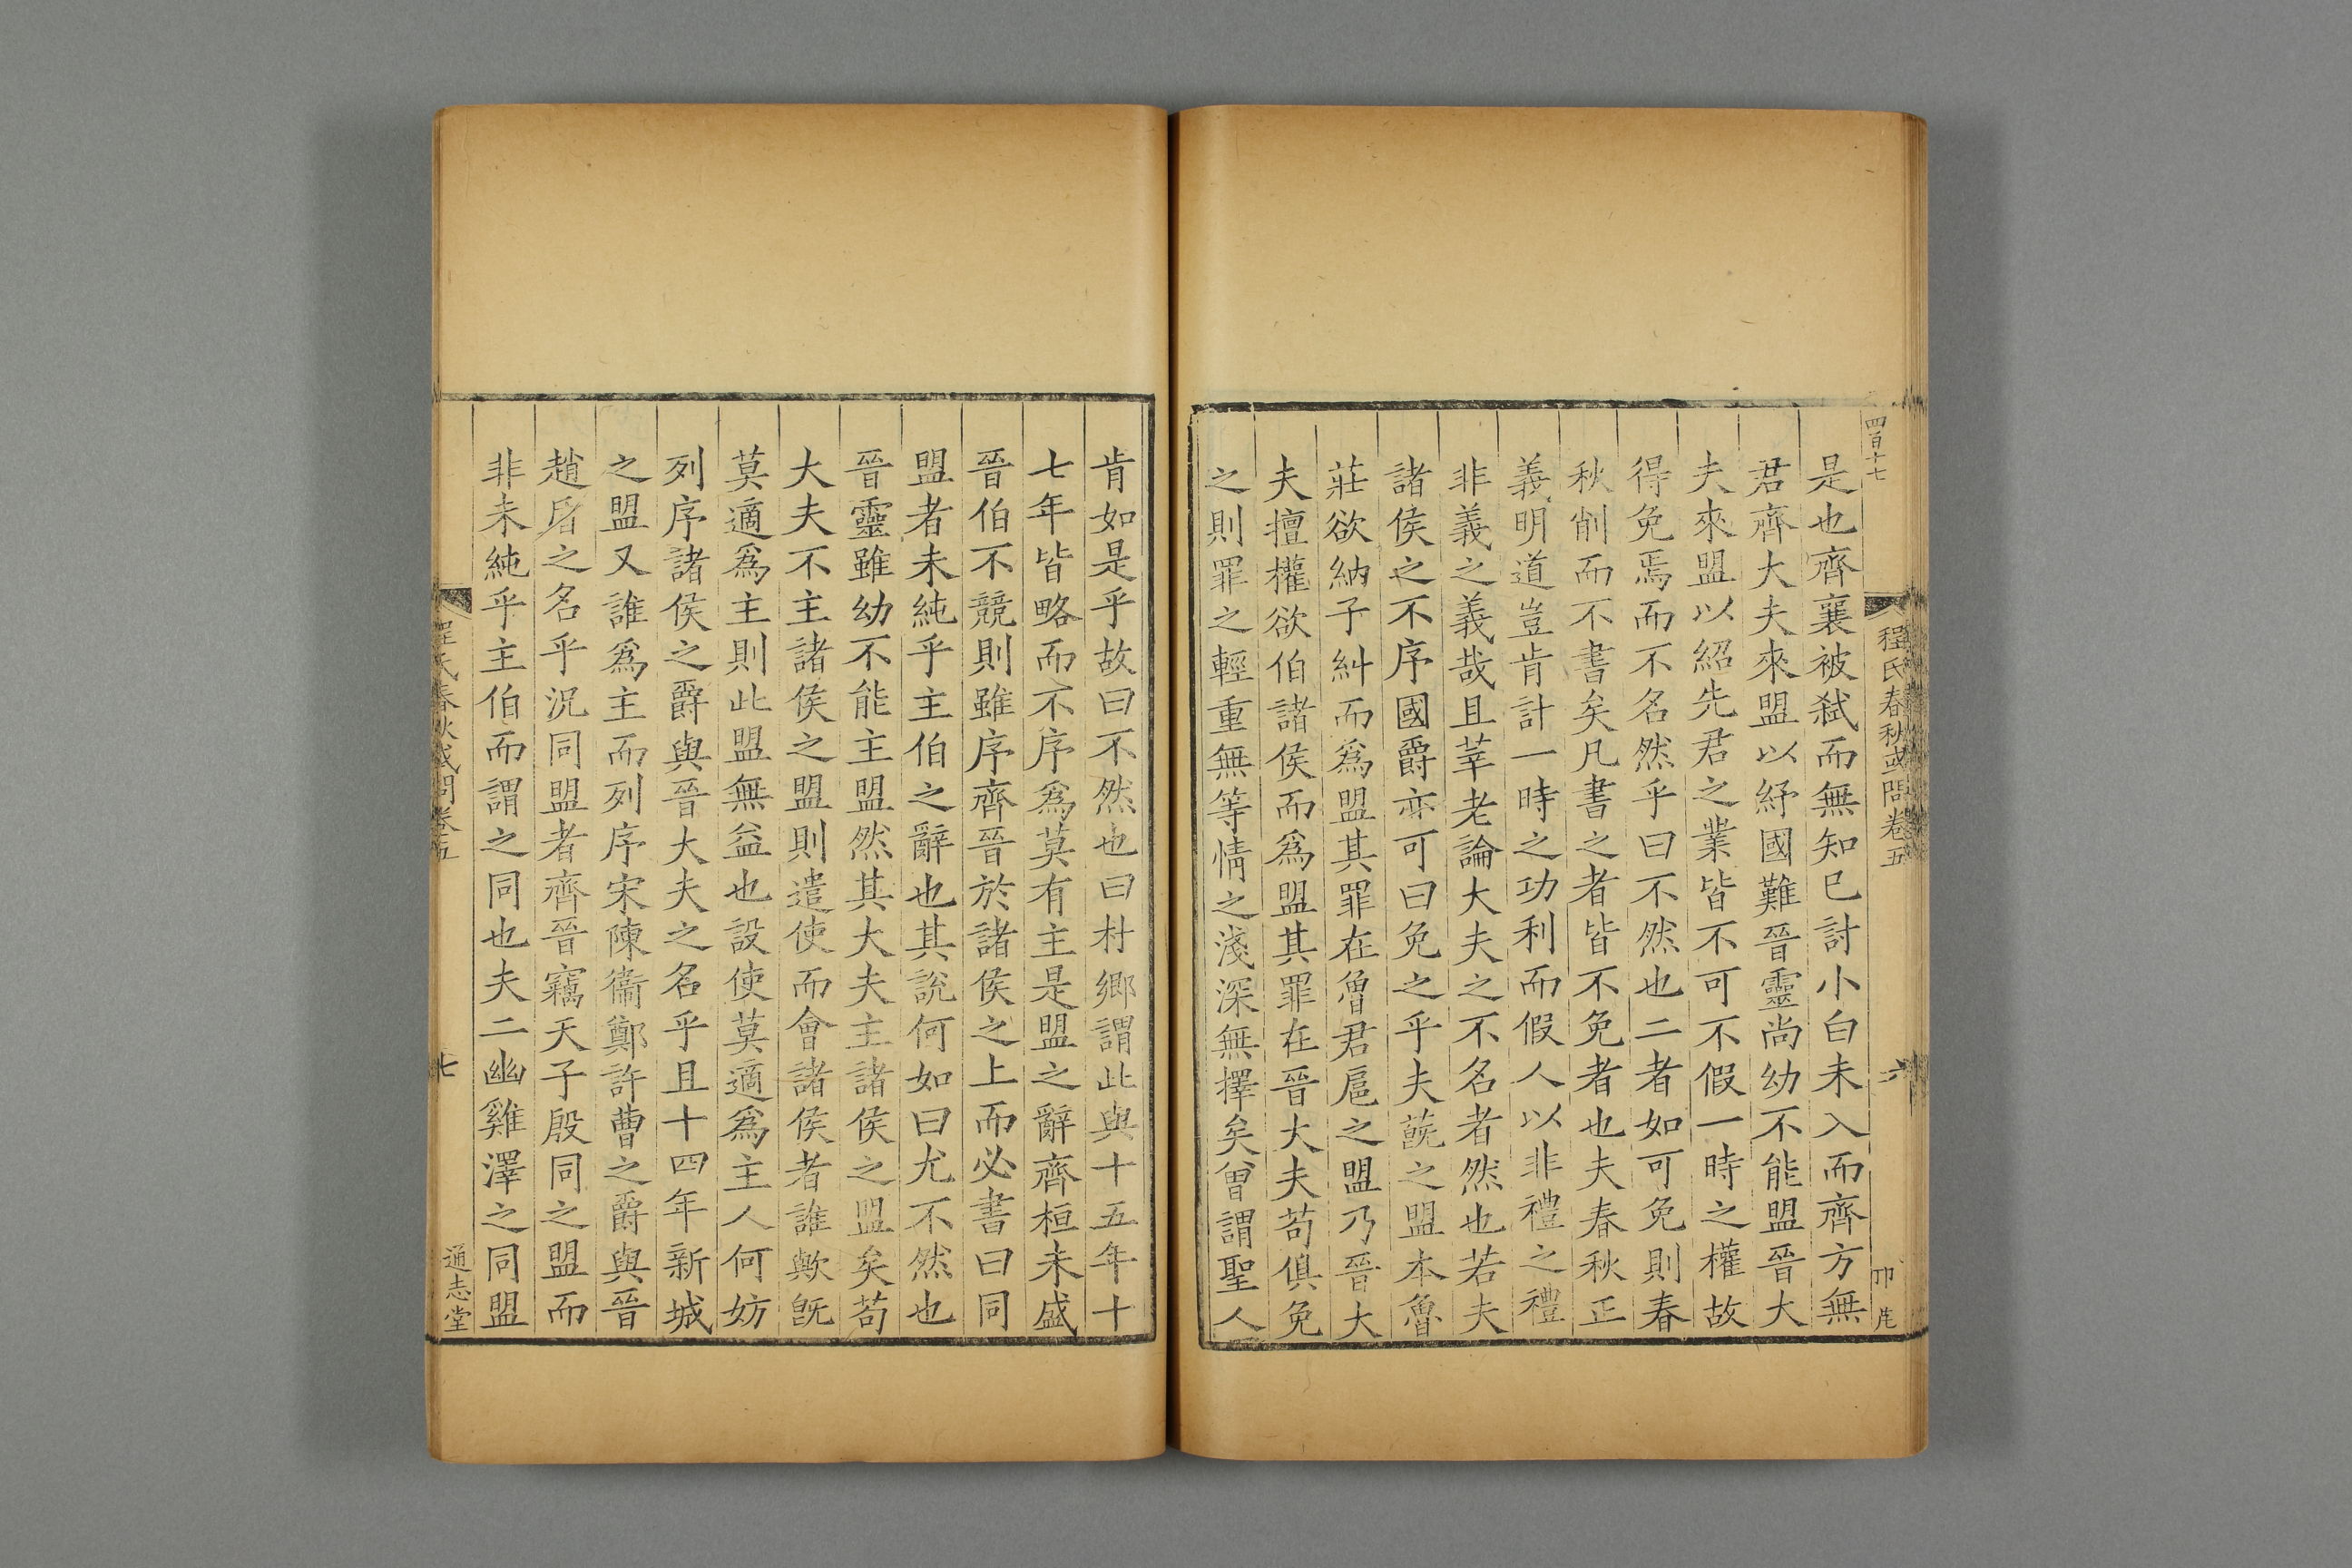 四百十七
程氏春秋或問卷五
六
是也齊襄被弑而無知已討小白未入而齊方無
君齊大夫來盟以紓國難晉靈尚幼不能盟晉大
夫來盟以紹先君之業皆不可不假一時之權故
得免焉而不名然乎曰不然也二者如可免則春
秋削而不書矣凡書之者皆不免者也夫春秋正
義明道豈肯計一時之功利而假人以非禮之禮
非義之義哉且莘老論大夫之不名者然也若夫
諸侯之不序國爵亦可曰免之乎夫蔇之盟本魯
莊欲納子糾而爲盟其罪在魯君扈之盟乃晉大
夫擅權欲伯諸侯而爲盟其罪在晉大夫苟俱免
之則罪之輕重無等情之淺深無擇矣曾謂聖人
肯如是乎故曰不然也曰村鄉謂此與十五年十
七年皆略而不序爲莫有主是盟之辭齊桓未盛
晉伯不競則雖序齊晉於諸侯之上而必書曰同
盟者未純乎主伯之辭也其說何如曰尤不然也
晉靈雖幼不能主盟然其大夫主諸侯之盟矣苟
大夫不主諸侯之盟則遣使而會諸侯者誰歟旣
莫適爲主則此盟無益也設使莫適爲主人何妨
列序諸侯之爵與晉大夫之名乎且十四年新城
之盟又誰爲主而列序宋陳衞鄭許曹之爵與晉
趙盾之名乎況同盟者齊晉竊天子殷同之盟而
非未純乎主伯而謂之同也夫二幽雞澤之同盟
程氏春秋或問卷五
七
通志堂